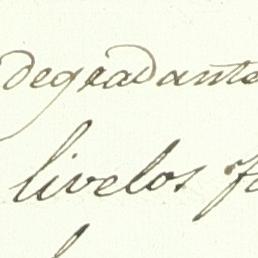 degradante
livelos